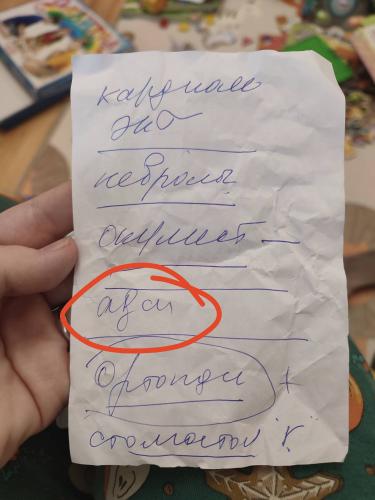 кардиоло
ЭКГ
невролог
окулист —
Ортопед +
стоматол